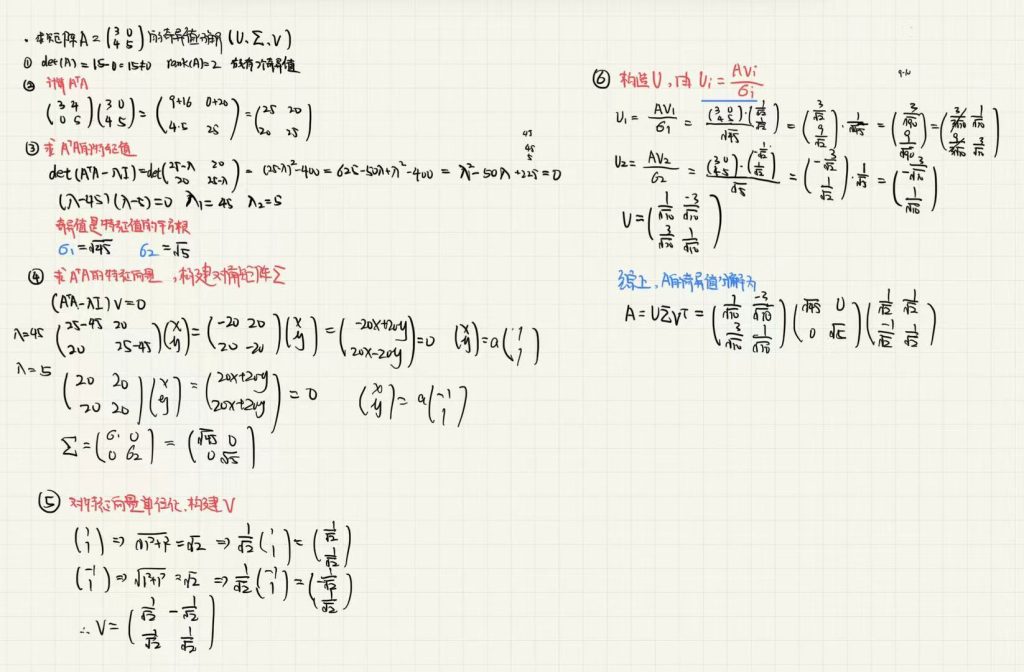 · 求矩阵A = (3 0; 4 5) 的奇异值分解 (U、Σ、V)
① det(A) = 15-0 = 15≠0 rank(A)=2 故有2个奇异值
② 计算AᵀA
(3 4; 0 5)(3 0; 4 5) = (9+16 0+20; 4·5 25) = (25 20; 20 25)
③ 求AᵀA的特征值
det(AᵀA-λI)=det(25-λ 20; 20 25-λ) = (25-λ)²-400 = 625-50λ+λ²-400 = λ²-50λ+225=0
(λ-45)(λ-5)=0 λ₁=45 λ₂=5
奇异值是特征值的平方根
σ₁=√45 σ₂=√5
④ 求AᵀA的特征向量,构建对角矩阵Σ
(AᵀA-λI)V=0
λ=45 (25-45 20; 20 25-45)(x; y) = (-20 20; 20 -20)(x; y) = (-20x+20y; 20x-20y)=0 (x; y)=a(1; 1)
λ=5 (20 20; 20 20)(x; y) = (20x+20y; 20x+20y) = 0 (x; y)=a(-1; 1)
Σ=(σ₁ 0; 0 σ₂) = (√45 0; 0 √5)
⑤ 对特征向量单位化,构建V
(1; 1) ⇒ √1²+1² = √2 ⇒ 1/√2 (1; 1) = (1/√2; 1/√2)
(-1; 1) ⇒ √1²+1² = √2 ⇒ 1/√2 (-1; 1) = (-1/√2; 1/√2)
∴ V= (1/√2 -1/√2; 1/√2 1/√2)
⑥ 构造U,由 Uᵢ = AVᵢ/σᵢ
U₁ = AV₁/σ₁ = (3 0; 4 5)·(1/√2; 1/√2)/√45 = (3/√2; 9/√2)·1/√45 = (3/√90; 9/√90) = (3/3√10 1/√10; 9/3√10 3/√10)
U₂ = AV₂/σ₂ = (3 0; 4 5)·(-1/√2; 1/√2)/√5 = (-3/√2; 1/√2)·1/√5 = (-3/√10; 1/√10)
U = (1/√10 -3/√10; 3/√10 1/√10)
综上,A的奇异值分解为
A = UΣVᵀ = (1/√10 -3/√10; 3/√10 1/√10)(√45 0; 0 √5)(1/√2 1/√2; -1/√2 1/√2)